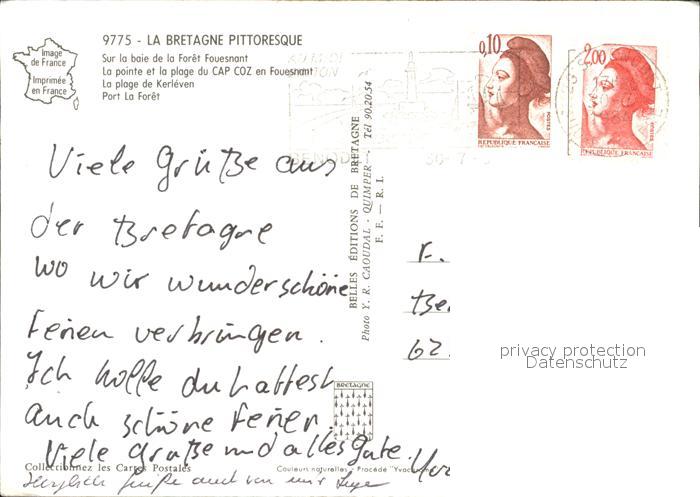 9775 - LA BRETAGNE PITTORESQUE
Sur la baie de la Forêt Fouesnant
La pointe et la plage du CAP COZ en Fouesnant
La plage de Kerléven
Port La Forêt
Image
de France
Imprimée
en France
0,10
POSTES
REPUBLIQUE FRANCAISE
2,00
POSTES
REPUBLIQUE FRANCAISE
BENODET
30-7-
Viele Grüße aus
der Bretagne
wo wir wunderschöne
Ferien verbringen.
Ich hoffe du hattest
auch schöne Ferien.
Viele Grüße und alles Gute.
Herzliche Grüße auch von
BELLES ÉDITIONS DE BRETAGNE
Photo Y. R. CAOUDAL - QUIMPER - Tél 90.20.54
F. F. — R. I.
BRETAGNE
F.
Be
62
privacy protection
Datenschutz
Collectionnez les Cartes Postales
Couleurs naturelles - Procédé "Yvacolor"